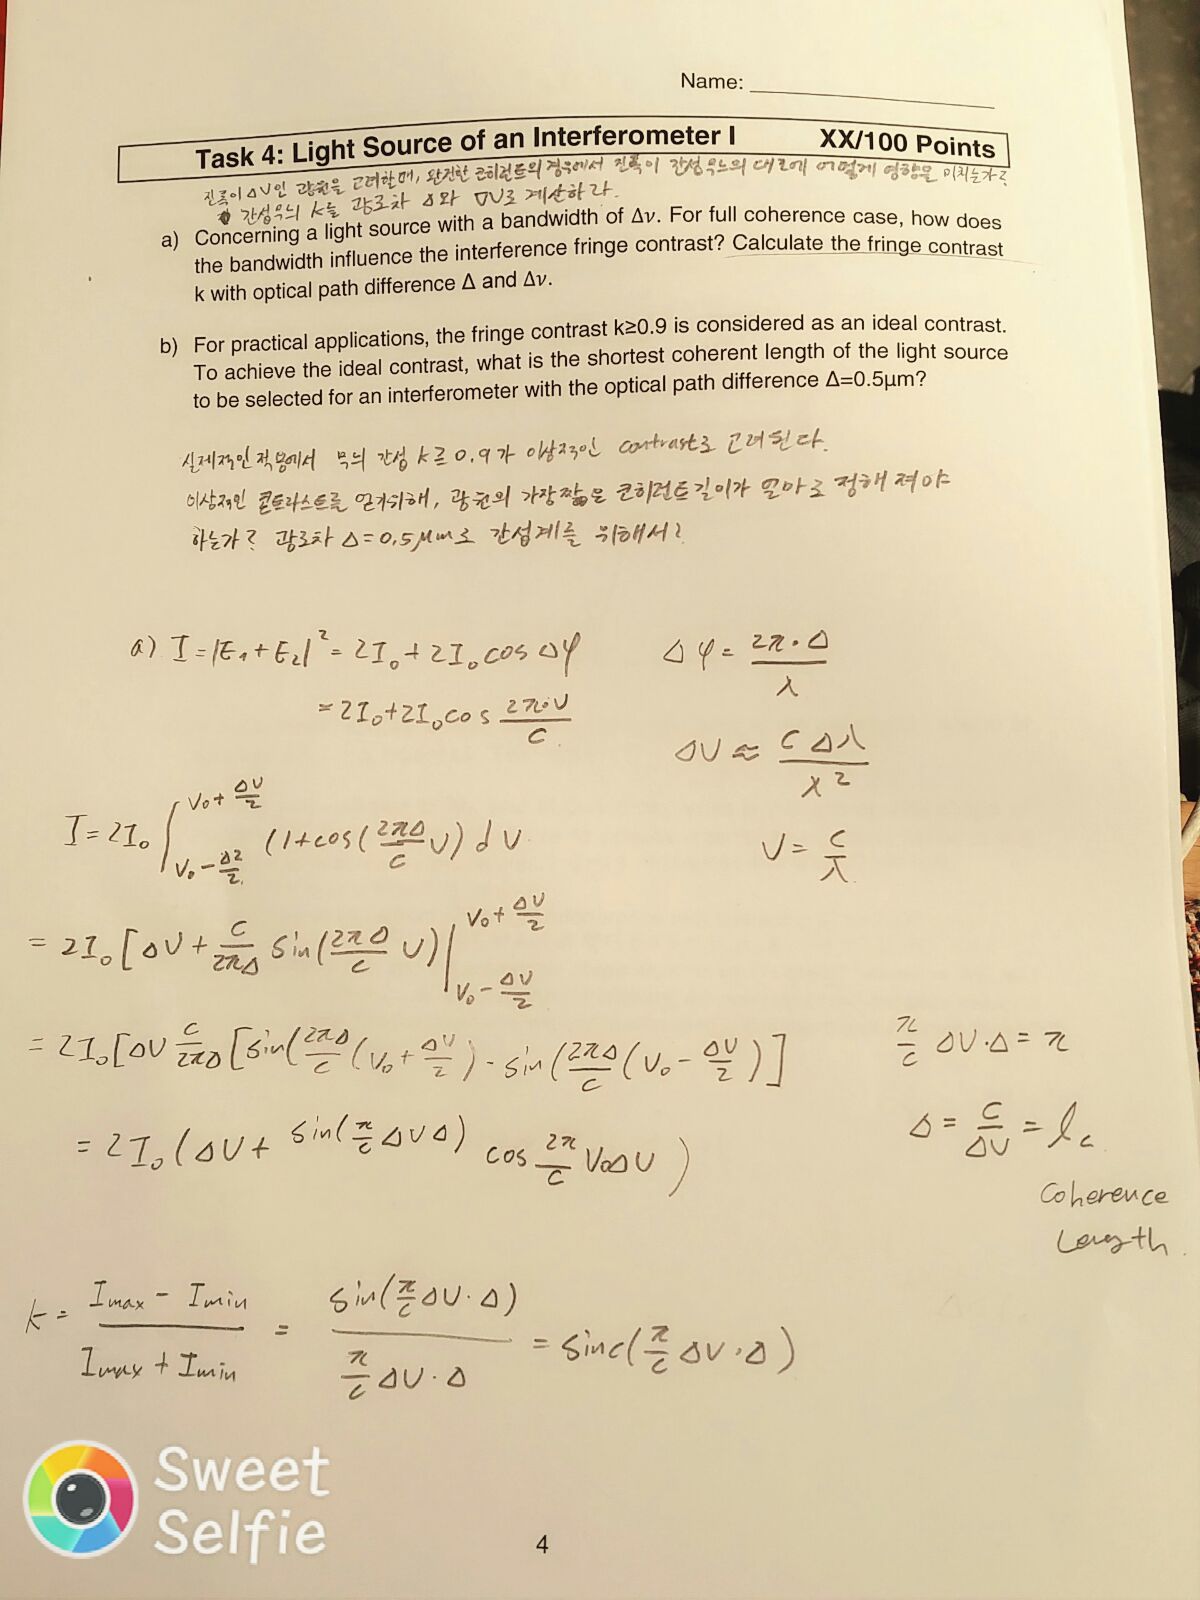 Name:
Task 4: Light Source of an Interferometer I XX/100 Points
진폭이 ΔV인 광원을 고려할때, 완전한 코히런트의 경우에서 진폭이 간섭무늬의 대조에 어떻게 영향을 미치는가?
간섭무늬 k를 광로차 Δ와 ▽V로 계산하라.
a) Concerning a light source with a bandwidth of Δν. For full coherence case, how does
the bandwidth influence the interference fringe contrast? Calculate the fringe contrast
k with optical path difference Δ and Δν.
b) For practical applications, the fringe contrast k≥0.9 is considered as an ideal contrast.
To achieve the ideal contrast, what is the shortest coherent length of the light source
to be selected for an interferometer with the optical path difference Δ=0.5μm?
실제적인 적용에서 무늬 간섭 k≥0.9가 이상적인 contrast로 고려된다.
이상적인 콘트라스트를 얻기위해, 광원의 가장짧은 코히런트길이가 얼마로 정해져야
하는가? 광로차 Δ=0.5μm로 간섭계를 위해서?
a) I = |E₁+E₂|² = 2I₀+2I₀cosΔφ
Δφ = 2π·Δ / λ
= 2I₀+2I₀cos 2π·υ / c
ΔV ≈ cΔλ / λ²
I = 2I₀ ∫_{V₀-Δ2/2}^{V₀+ΔV/2} (1+cos(2πΔ/c V) dV
V = c/λ
= 2I₀[ΔV + c/2πΔ sin(2πΔ/c V)|_{V₀-ΔV/2}^{V₀+ΔV/2}
= 2I₀[ΔV c/2πΔ [sin(2πΔ/c (V₀+ΔV/2) - sin(2πΔ/c (V₀-ΔV/2)]
π/c ΔV·Δ = π
= 2I₀(ΔV + sin(π/c ΔVΔ) cos 2π/c V₀ΔV)
Δ = c/ΔV = lc
Coherence
Length
k = Imax - Imin / Imax + Imin = sin(π/c ΔV·Δ) / π/c ΔV·Δ = sinc(π/c ΔV·Δ)
Sweet
Selfie
4